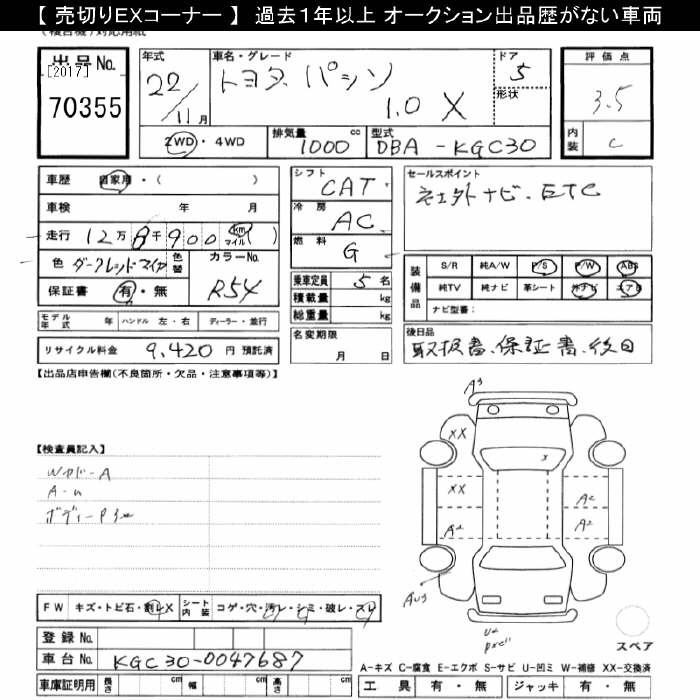 【 売切りEXコーナー 】 過去1年以上 オークション出品歴がない車両
出品No.
[2017]
70355
年式
22/11月
車名・グレード
トヨタ パッソ
1.0 X
ドア
5
形状
評価点
3.5
内装
C
2WD・4WD
排気量 1000 cc
型式 DBA-KGC30
車歴 自家用・( )
車検 年 月
走行 12万8千900 km マイル ( )
色 ダークレッドマイカ
色替
カラーNo.
R54
保証書 有・無
シフト
CAT
冷房
AC
燃料
G
乗車定員 5名
積載量 kg
総重量 kg
名変期限
月 日
セールスポイント
社外ナビ・ETC
装備品
S/R 純A/W P/S P/W ABS
純TV 純ナビ 革シート 外ナビ エアB
ナビ型番:
後日品
取扱書、保証書、後日
モデル年式 ハンドル 左・右 ディーラー・並行
リサイクル料金 9,420 円 預託済
【出品店申告欄(不良箇所・欠品・注意事項等)】
【検査員記入】
A3
XX
X
XX
A2
A2
FW キズ・トビ石・割レX
シート内装 コゲ・穴・汚レ・シミ・破レ・スレ
登録No.
車台No. KGC30-0047687
車庫証明用 長さ cm 幅 cm 高さ cm
スペア
A-キズ C-腐食 E-エクボ S-サビ U-凹ミ W-補修 XX-交換済
工具 有・無 ジャッキ 有・無